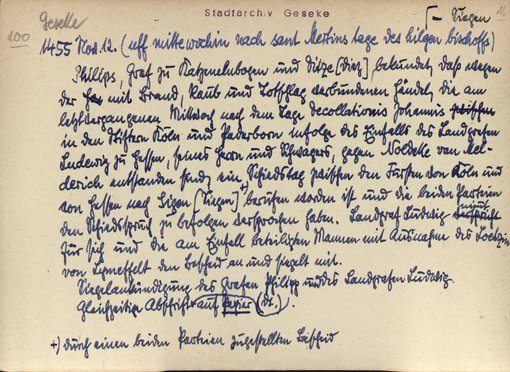 Geseke
Stadtarchiv Geseke
Siegen
100
1455 Nov. 12. (uff mittewochin nach sant Mertins tage des hilgen bischoffs)
Philips, Graf zu Katzenelnbogen und Dietze [Diez] bekundet, daß wegen
der mit Brand, Raub und Totschlag verbundenen Händel, die am
letztvergangenen Mittwoch nach dem Tage Decollationis Johannis
in den Stiftern Köln und Paderborn infolge des Einfalls des Landgrafen
Ludewig zu Hessen, seines Herrn und Schwagers, gegen Noldeke von
derich entstanden sind, ein Schiedstag zwischen den Fürsten von Köln und
von Hessen nach Sigen [Siegen] berufen worden ist und die beiden Parteien
den Schiedsspruch +) zu befolgen versprochen haben. Landgraf Ludwig nimmt
für sich und die am Einfall beteiligten Mannen mit Ausnahme des
von den Bescheid an und siegelt mit.
Siegelankündigung des Grafen Philipp und des Landgrafen Ludwig.
Gleichzeitige Abschrift auf Papier (dt.).
+) durch einen beiden Parteien zugestellten Bescheid